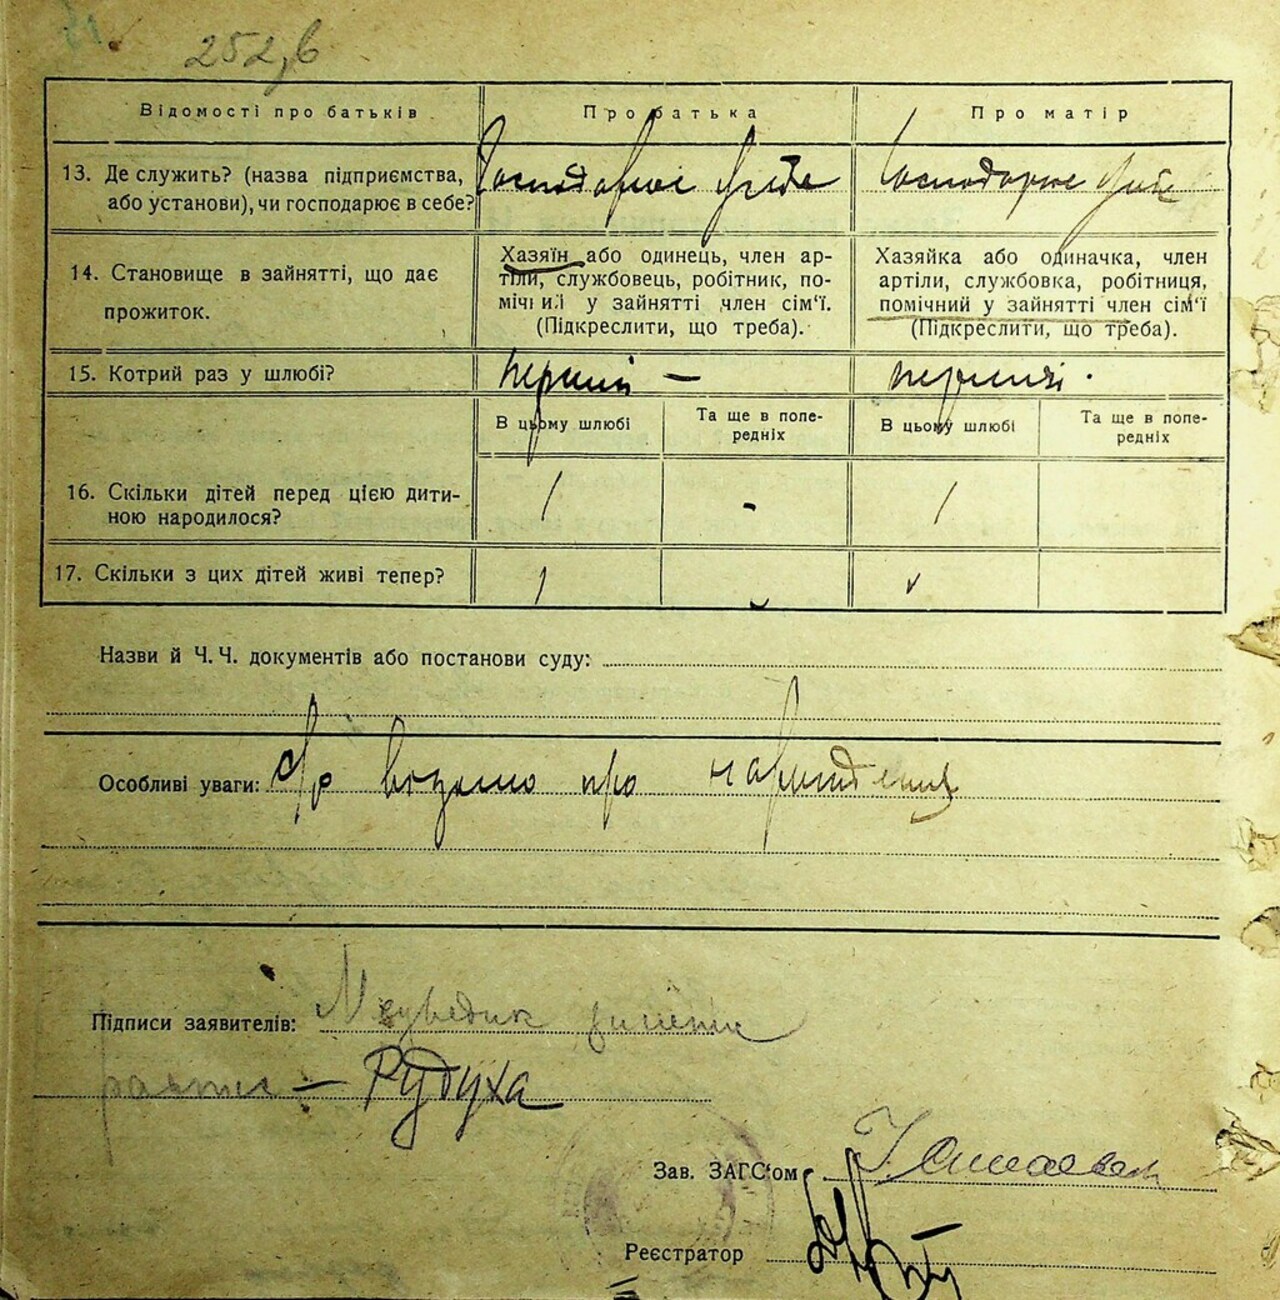 252,в
Відомості про батьків Про батька Про матір
13. Де служить? (назва підприємства, або установи), чи господарює в себе?
Господарює Господарює
14. Становище в зайнятті, що дає прожиток.
Хазяїн або одинець, член ар-
тіли, службовець, робітник, по-
мічний у зайнятті член сім'ї.
(Підкреслити, що треба).
Хазяйка або одиначка, член
артіли, службовка, робітниця,
помічний у зайнятті член сім'ї
(Підкреслити, що треба).
15. Котрий раз у шлюбі? перший — перший.
В цьому шлюбі Та ще в попе-
редніх В цьому шлюбі Та ще в попе-
редніх
16. Скільки дітей перед цією дити-
ною народилося? 1 - 1
17. Скільки з цих дітей живі тепер? 1
Назви й Ч. Ч. документів або постанови суду:
Особливі уваги: про
Підписи заявителів:
— Рудуха
Зав. ЗАГС'ом
Реєстратор